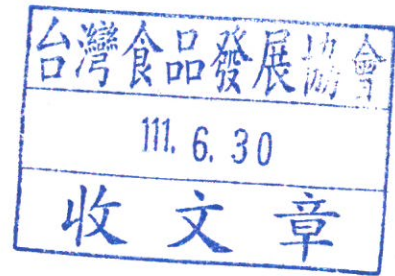 台灣食品發展協會
111. 6. 30
收文章